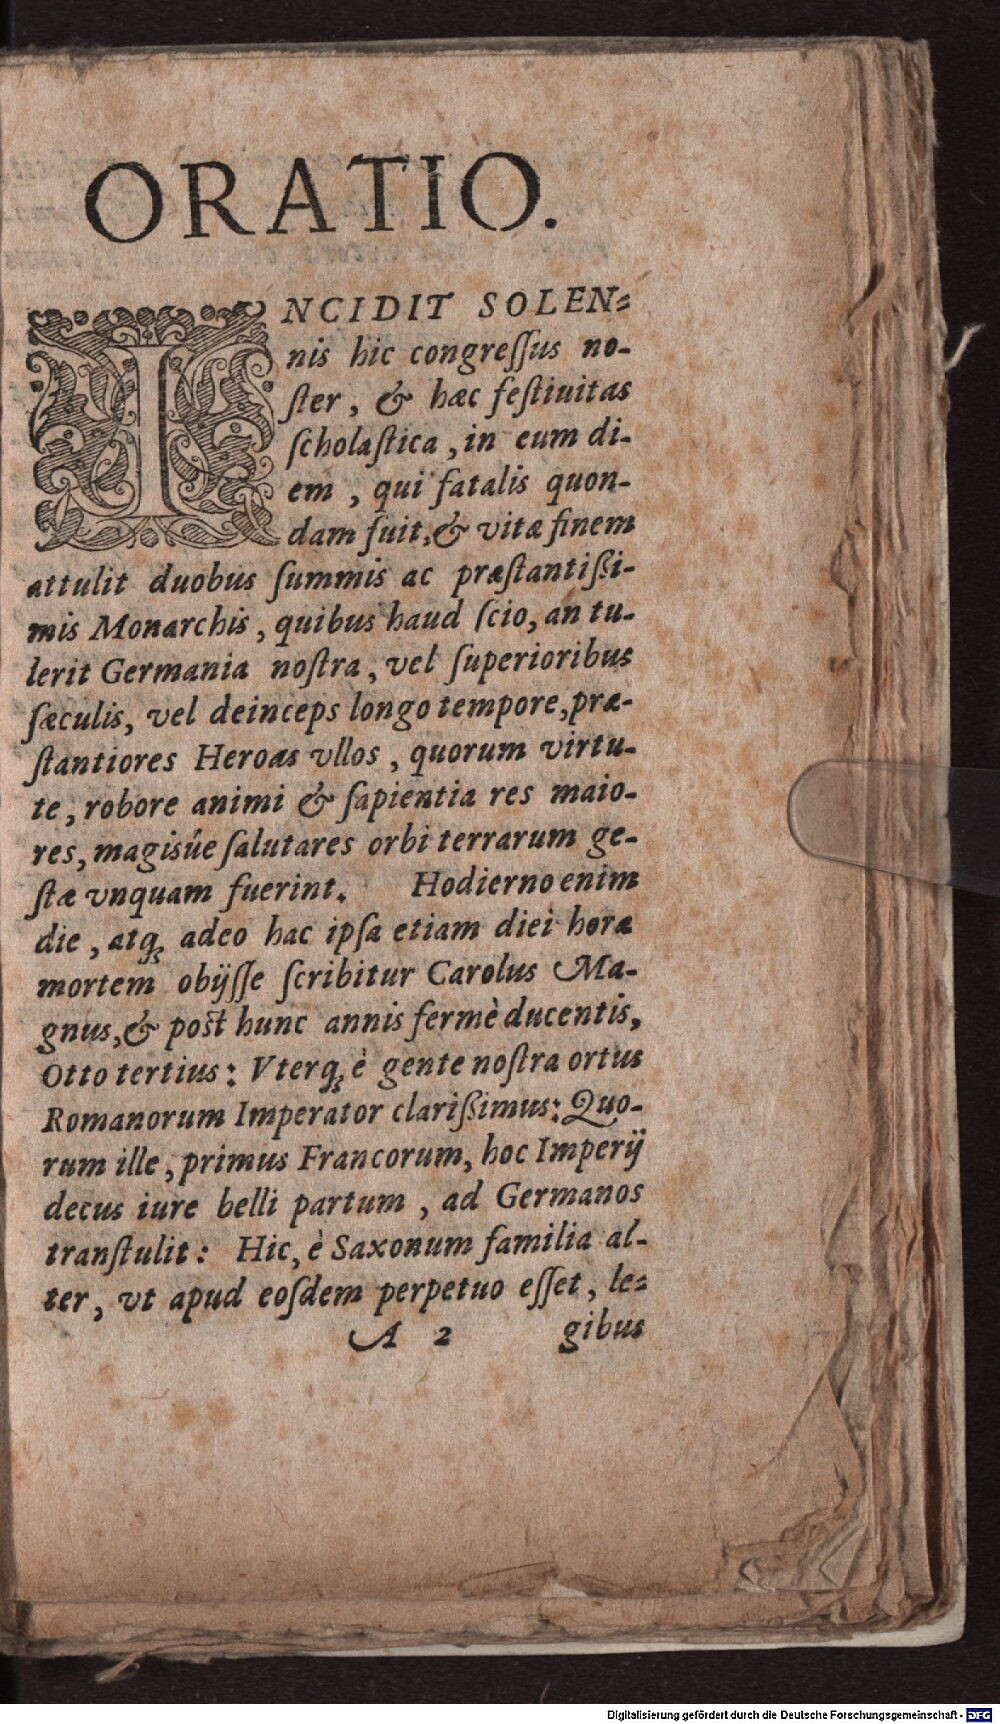 ORATIO.
INCIDIT SOLEN⸗
nis hic congreſſus no-
ſter, & hæc feſtiuitas
ſcholaſtica, in eum di-
em, qui fatalis quon-
dam fuit, & vitæ finem
attulit duobus ſummis ac præſtantißi-
mis Monarchis, quibus haud ſcio, an tu-
lerit Germania noſtra, vel ſuperioribus
ſæculis, vel deinceps longo tempore, præ-
ſtantiores Heroas vllos, quorum virtu-
te, robore animi & ſapientia res maio-
res, magisúe ſalutares orbi terrarum ge-
ſtæ vnquam fuerint. Hodierno enim
die, atq́ꝫ adeo hac ipſa etiam diei hora
mortem obijſſe ſcribitur Carolus Ma-
gnus, & poſt hunc annis fermè ducentis,
Otto tertius: Vterq́ꝫ è gente noſtra ortus
Romanorum Imperator clarißimus: Quo-
rum ille, primus Francorum, hoc Imperij
decus iure belli partum, ad Germanos
tranſtulit: Hic, è Saxonum familia al-
ter, vt apud eoſdem perpetuo eſſet, le⸗
A 2 gibus
Digitalisierung gefördert durch die Deutsche Forschungsgemeinschaft - DFG